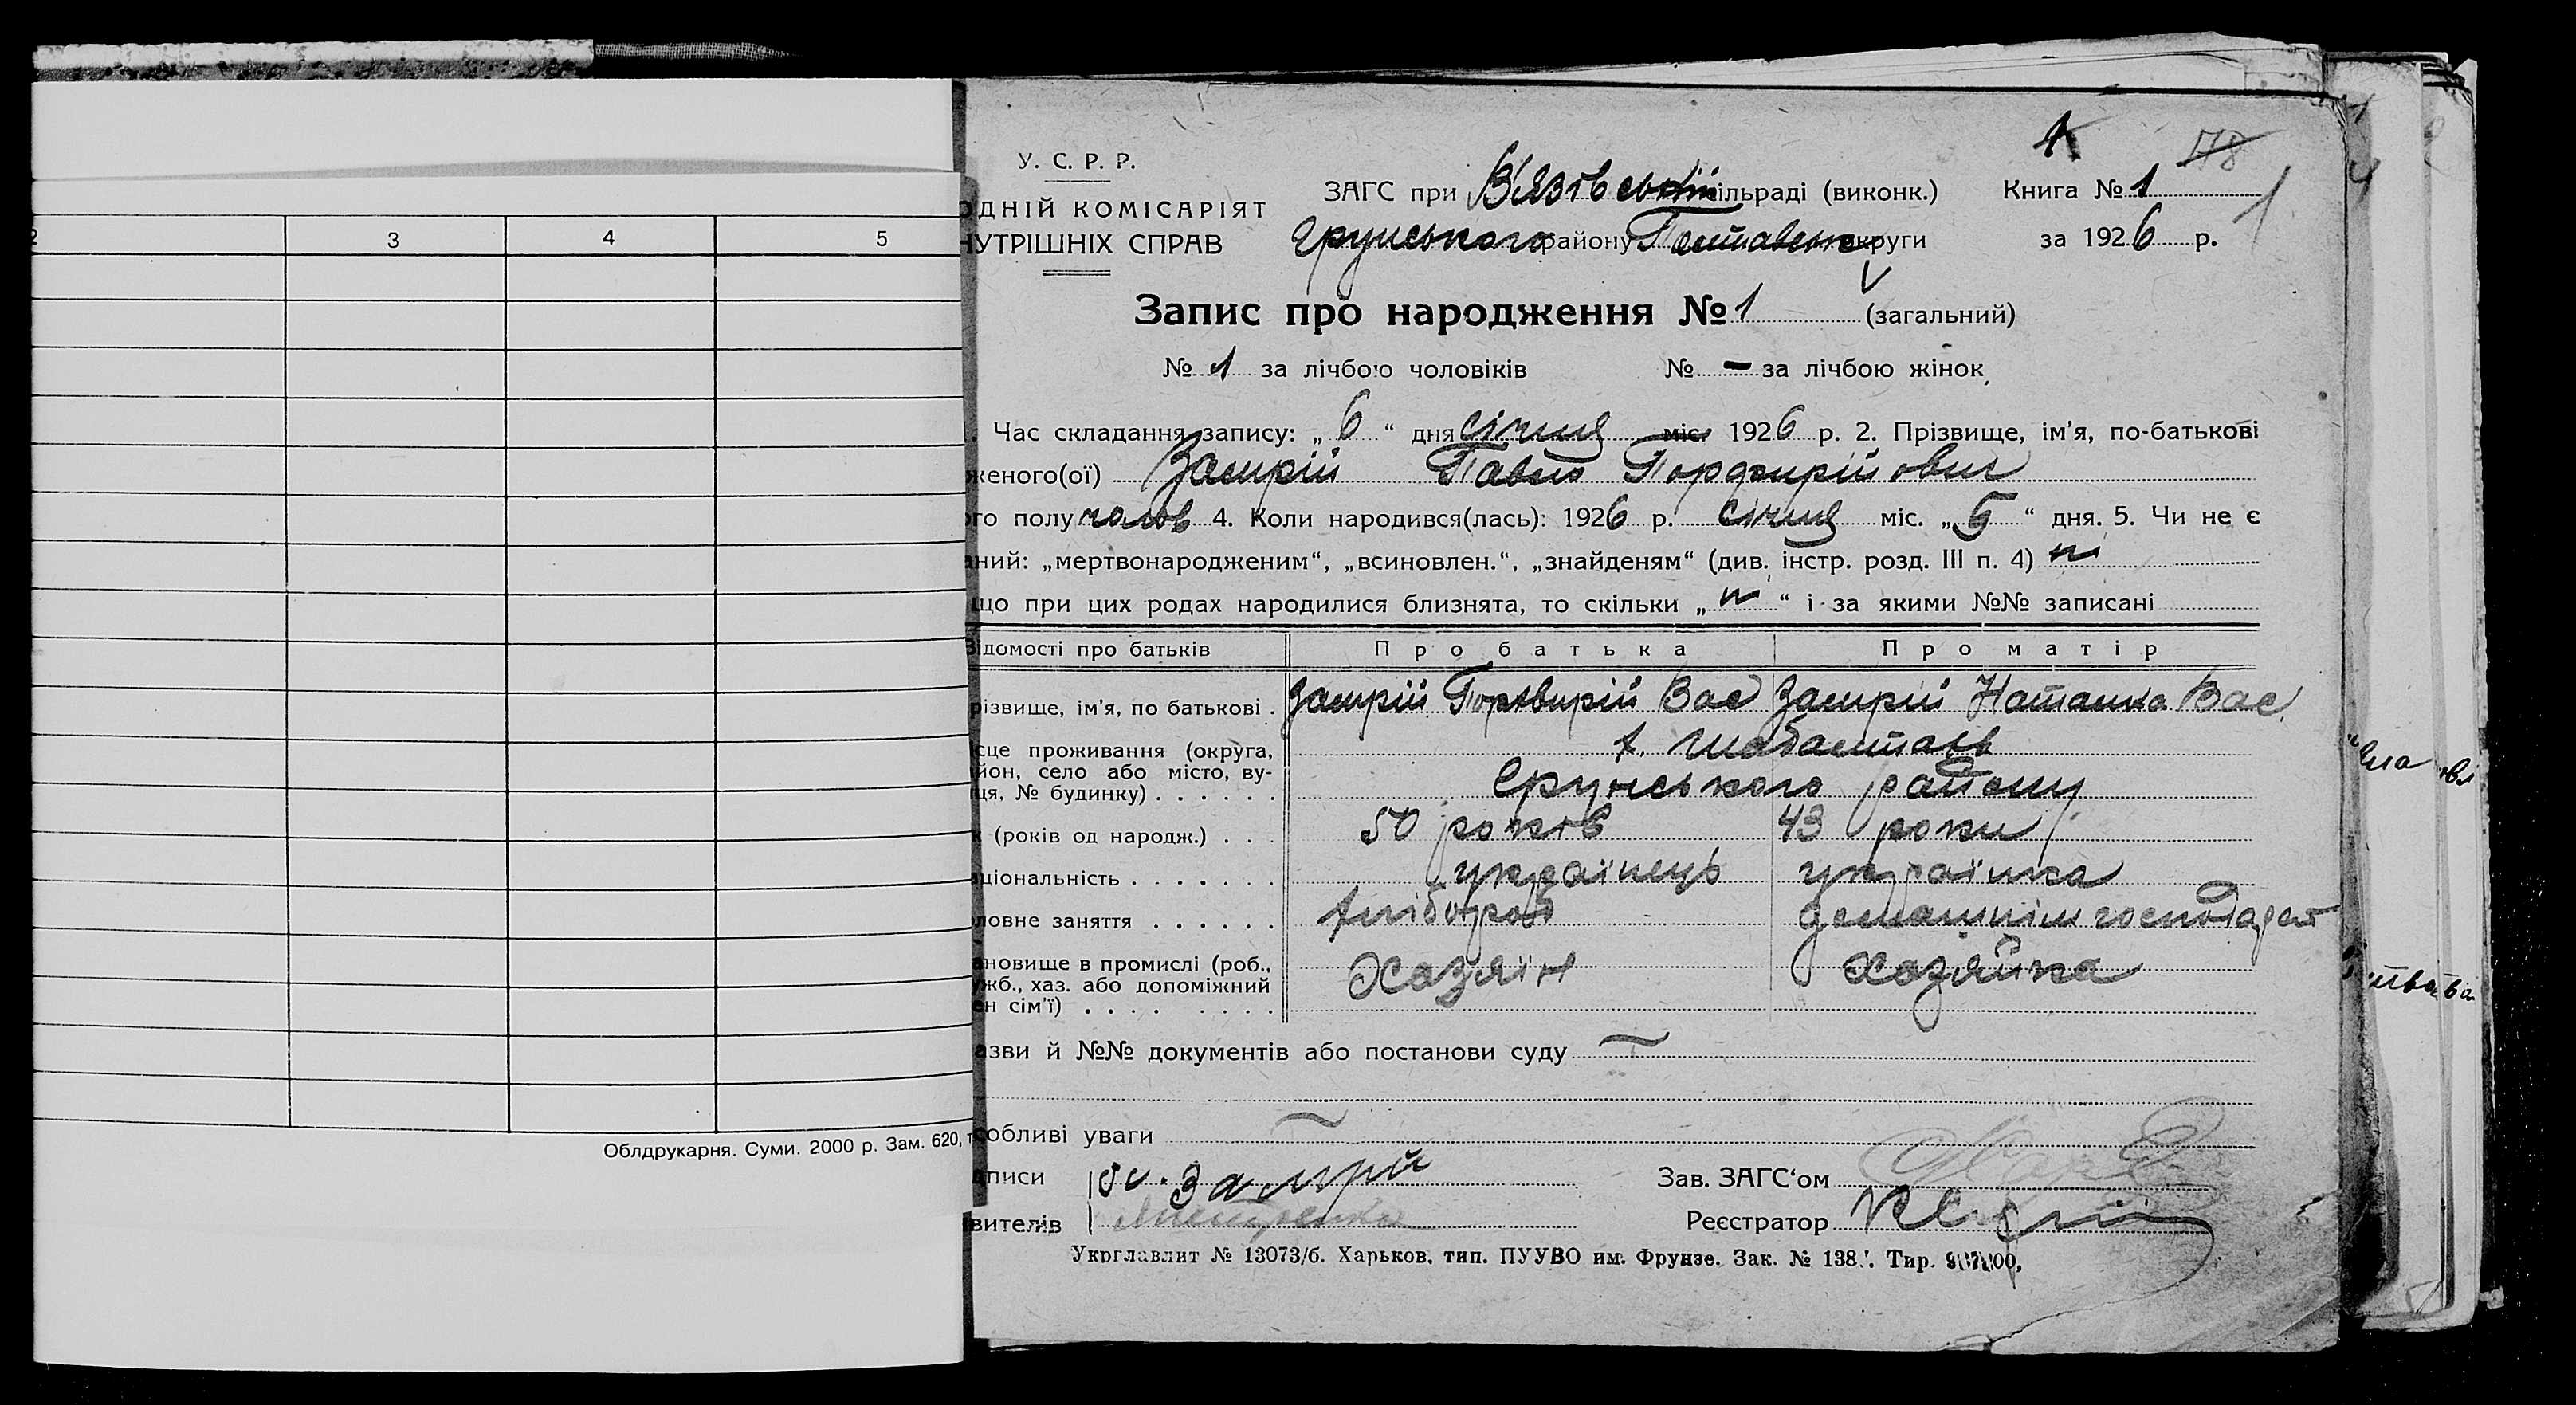 2 3 4 5
Облдрукарня. Суми. 2000 р. Зам. 620, т
У. С. Р. Р.
ОДНІЙ КОМІСАРІЯТ
НУТРІШНІХ СПРАВ
1 178
ЗАГС при В'язівській сільраді (виконк.) Книга № 1
Грунського району Полтавськ округи за 1926 р.
1
Запис про народження № 1 (загальний)
№ 1 за лічбою чоловіків № — за лічбою жінок
. Час складання запису: „ 6 “ дня січня міс. 1926 р. 2. Прізвище, ім'я, по-батькові
женого(ої) Замрій Павло Порфирійович
ого полу чолов 4. Коли народився(лась): 1926 р. січня міс. „ 5 “ дня. 5. Чи не є
аний: „мертвонародженим“, „всиновлен.“, „знайденям“ (див. інстр. розд. III п. 4) н
що при цих родах народилися близнята, то скільки „ н “ і за якими №№ записані
Відомості про батьків Про батька Про матір
різвище, ім'я, по батькові . Замрій Порхвирій Вас Замрій Наталка Вас.
ісце проживання (округа, йон, село або місто, ву- ця, № будинку) . . . . . .
х.
Грунського району
к (років од народж.) . . . 50 років 43 роки
аціональність . . . . . . . українець українка
ловне заняття . . . . . . хлібороб домашнім господарст
ановище в промислі (роб., ужб., хаз. або допоміжний ен сім'ї) . . . . . . . .
Хазяїн Хазяйка
азви й №№ документів або постанови суду —
собливі уваги —
дписи Замрій Зав. ЗАГС'ом
вителів Реєстратор
Укрглавлит № 13073/б. Харьков, тип. ПУУВО им. Фрунзе. Зак. № 138 . Тир.